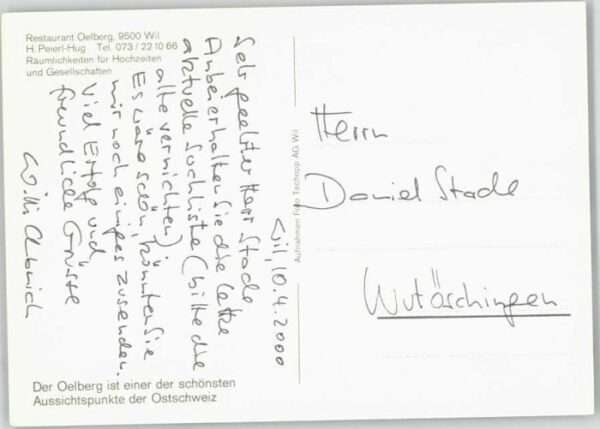 Restaurant Oelberg, 9500 Wil
H. Peierl-Hug Tel. 073 / 22 10 66
Räumlichkeiten für Hochzeiten
und Gesellschaften
Wil, 10.4.2000
Sehr geehrter Herr Stade
Anbei erhalten Sie die letzte
aktuelle Suchliste (bitte die
alte vernichten).
Es wäre schön, könnten Sie
mir noch einiges zusenden.
Viel Erfolg und
freundliche Grüsse
Willi
Aufnahmen Foto Tschopp AG Wil
Herrn
Daniel Stade
Wutöschingen
Der Oelberg ist einer der schönsten
Aussichtspunkte der Ostschweiz